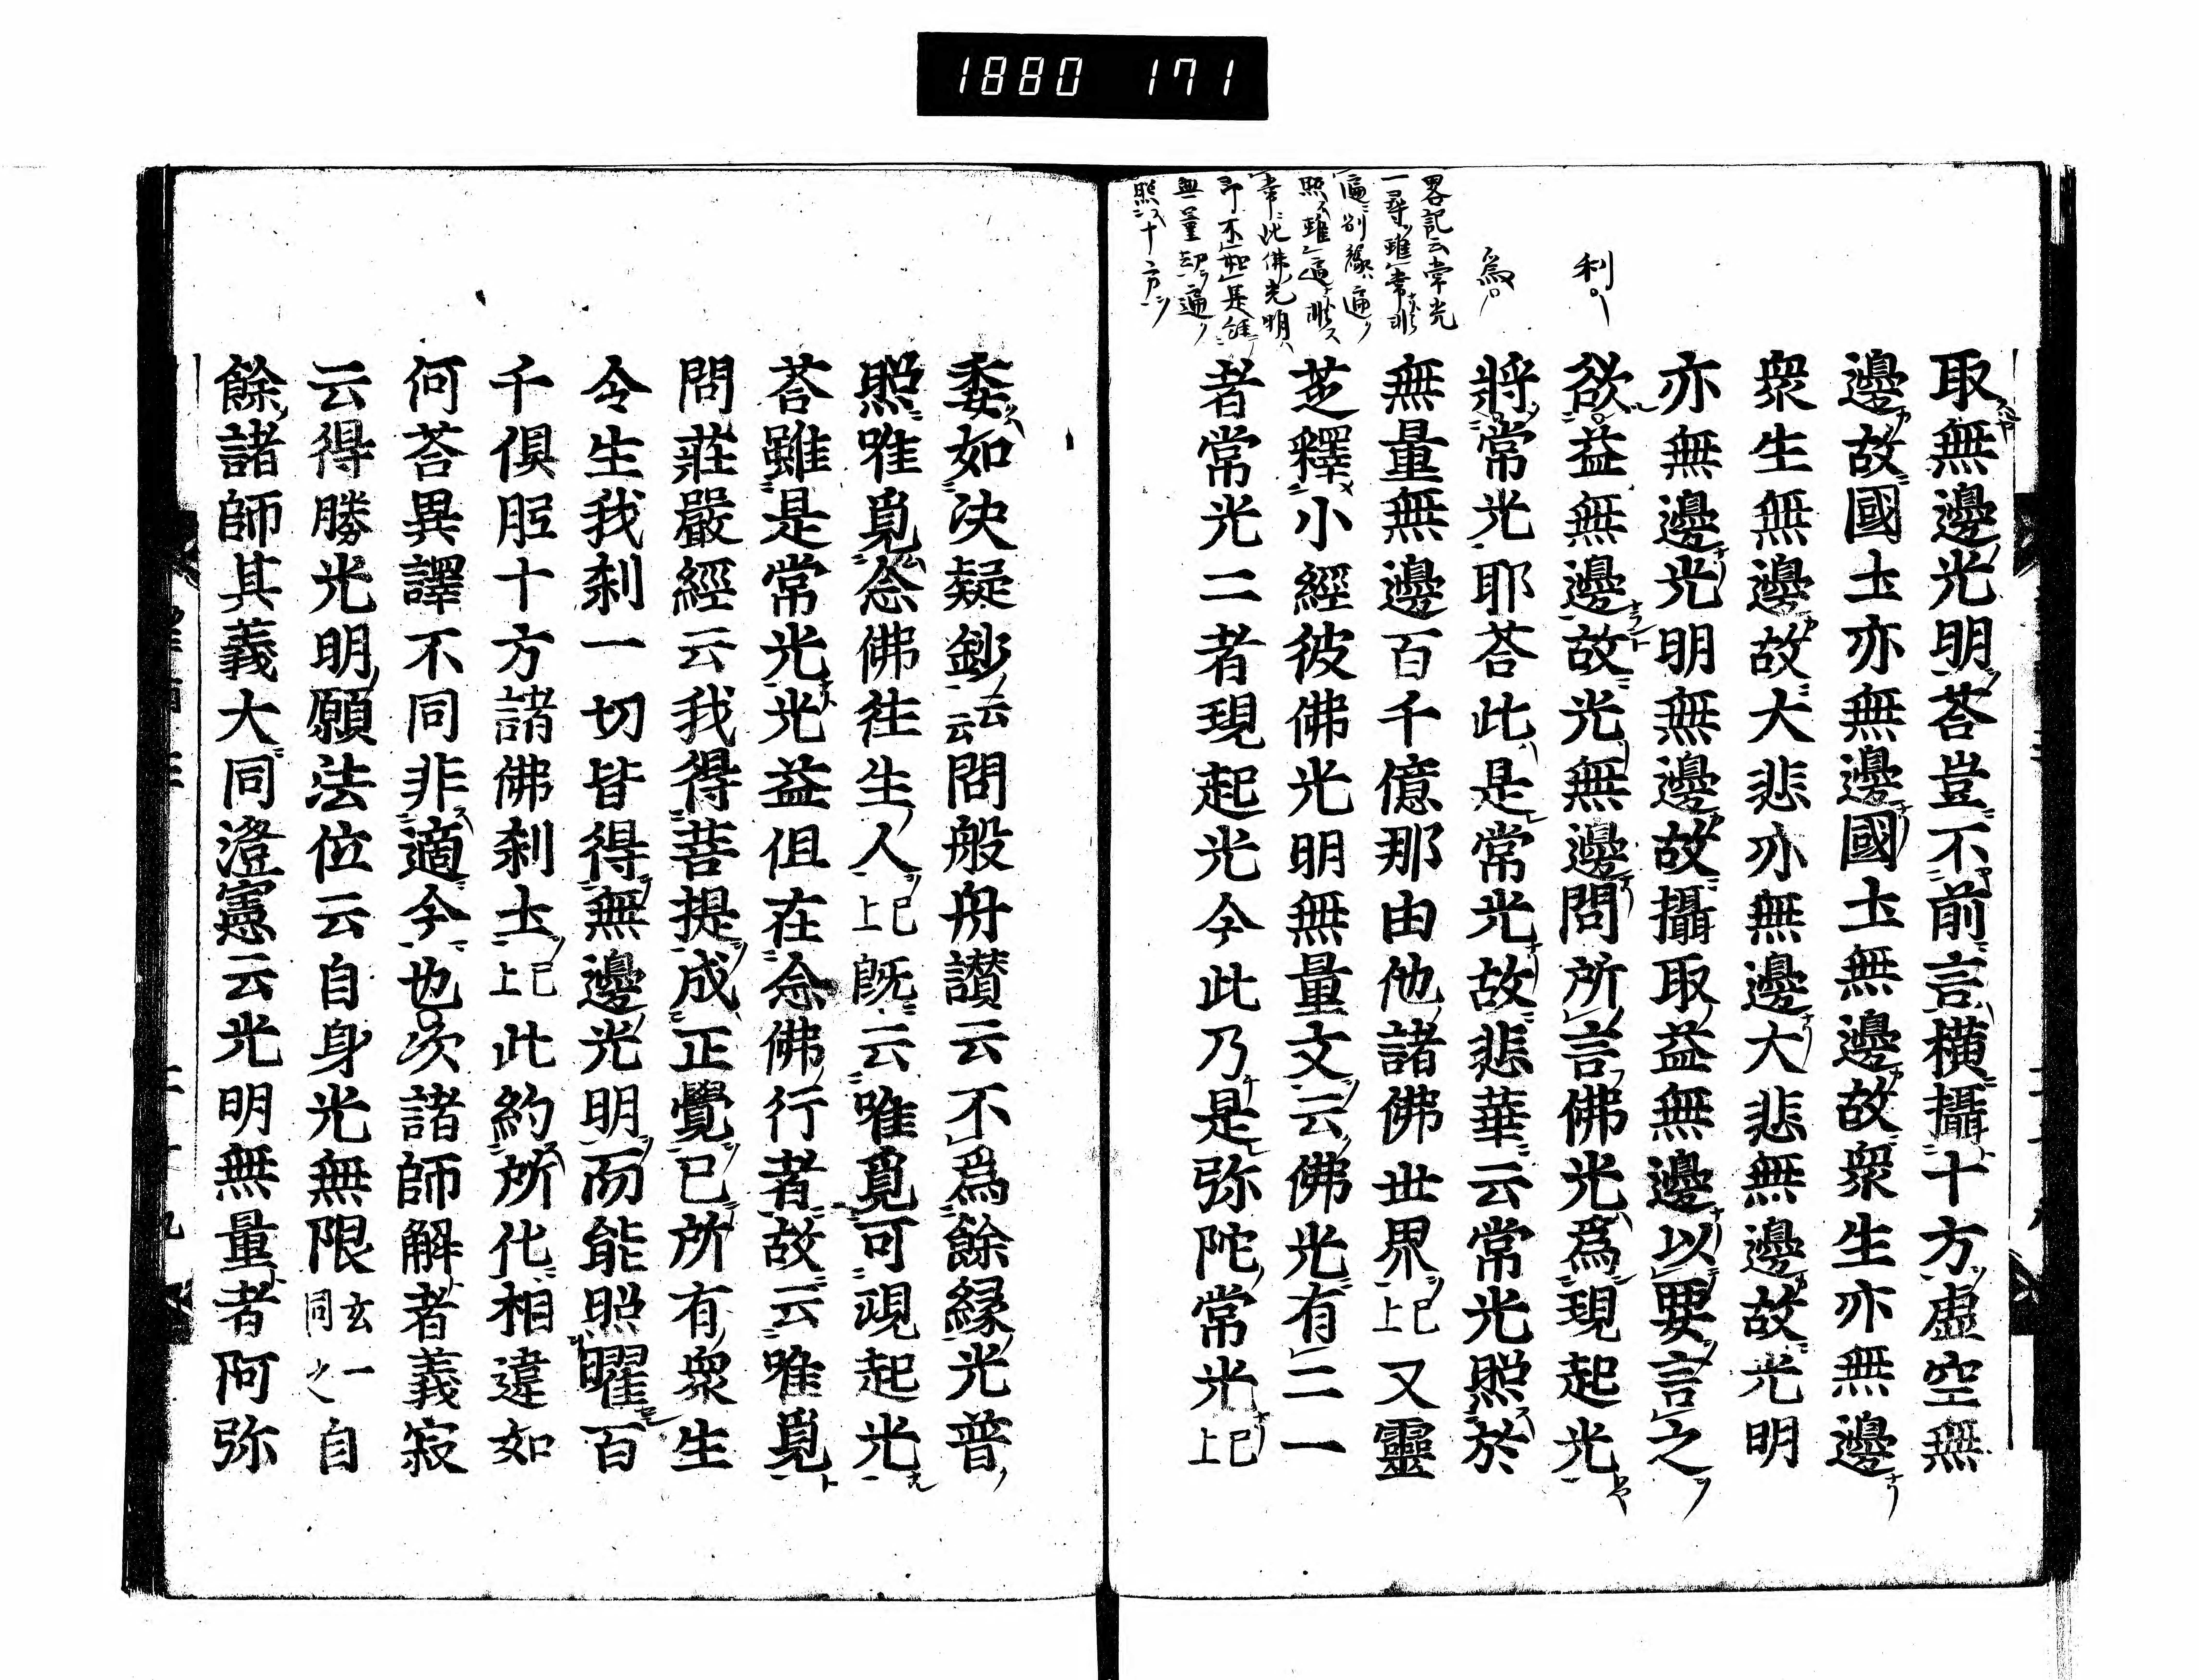 1880 171
利
為
畧記云常光
一尋雖常非
遍別緣遍
照雖遍非
常此佛光明
即不如是
無量劫遍
照十方
取無邊光明荅豈不前言横攝十方虛空無
邊故國土亦無邊國土無邊故衆生亦無邊
衆生無邊故大悲亦無邊大悲無邊故光明
亦無邊光明無邊故攝取益無邊以要言之
欲益無邊故光無邊問所言佛光爲現起光
將常光耶荅此是常光故悲華云常光照於
無量無邊百千億那由他諸佛世界已上又靈
芝釋小經彼佛光明無量文云佛光有二一
者常光二者現起光今此乃是弥陀常光已上
委如決疑鈔云云問般舟讃云不爲餘緣光普
照唯覓念佛往生人已上旣云唯覓可現起光
荅雖是常光光益但在念佛行者故云唯覓
問莊嚴經云我得菩提成正覺已所有衆生
令生我刹一切皆得無邊光明而能照曜百
千俱胝十方諸佛刹土已上此約所化相違如
何荅異譯不同非適今也次諸師解者義寂
云得勝光明願法位云自身光無限玄一同之自
餘諸師其義大同澄憲云光明無量者阿弥